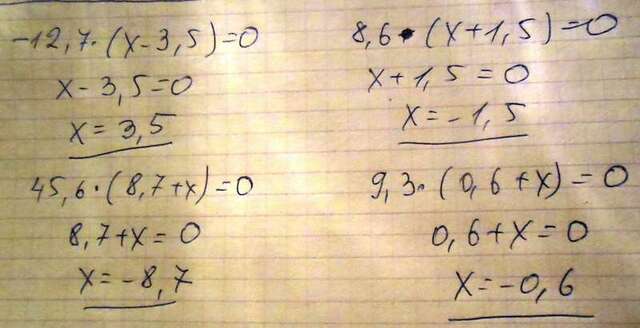 -12,7·(x-3,5)=0
x-3,5=0
x=3,5
8,6·(x+1,5)=0
x+1,5=0
x=-1,5
45,6·(8,7+x)=0
8,7+x=0
x=-8,7
9,3·(0,6+x)=0
0,6+x=0
x=-0,6